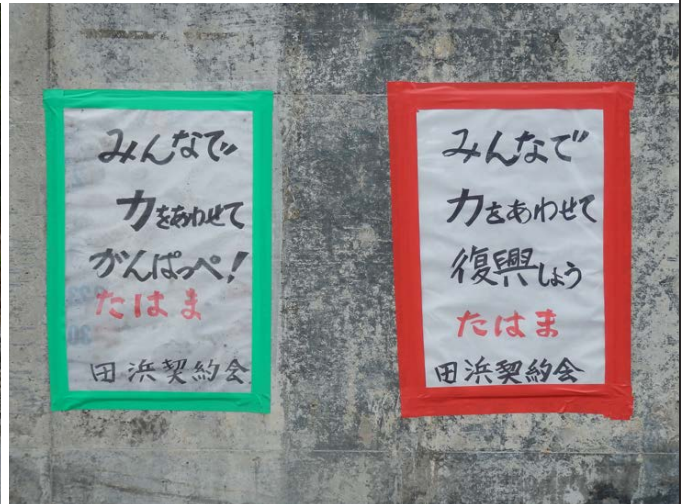 みんなで
力をあわせて
がんばっぺ！
たはま
田浜契約会
みんなで
力をあわせて
復興しょう
たはま
田浜契約会